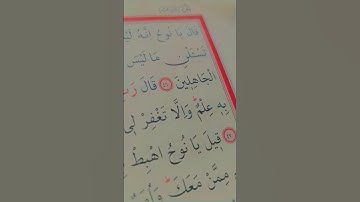 قَالَ يَا نُوحُ اِنَّهُ
تَسْـَٔلْنِ مَا لَيْسَ
الْجَاهِلِينَ ﴿٤٦﴾ قَالَ
بِهِ عِلْمٌ وَاِلَّا تَغْفِرْ لِي
﴿٤٧﴾ قِيلَ يَا نُوحُ اهْبِطْ
مِمَّنْ مَعَكَ